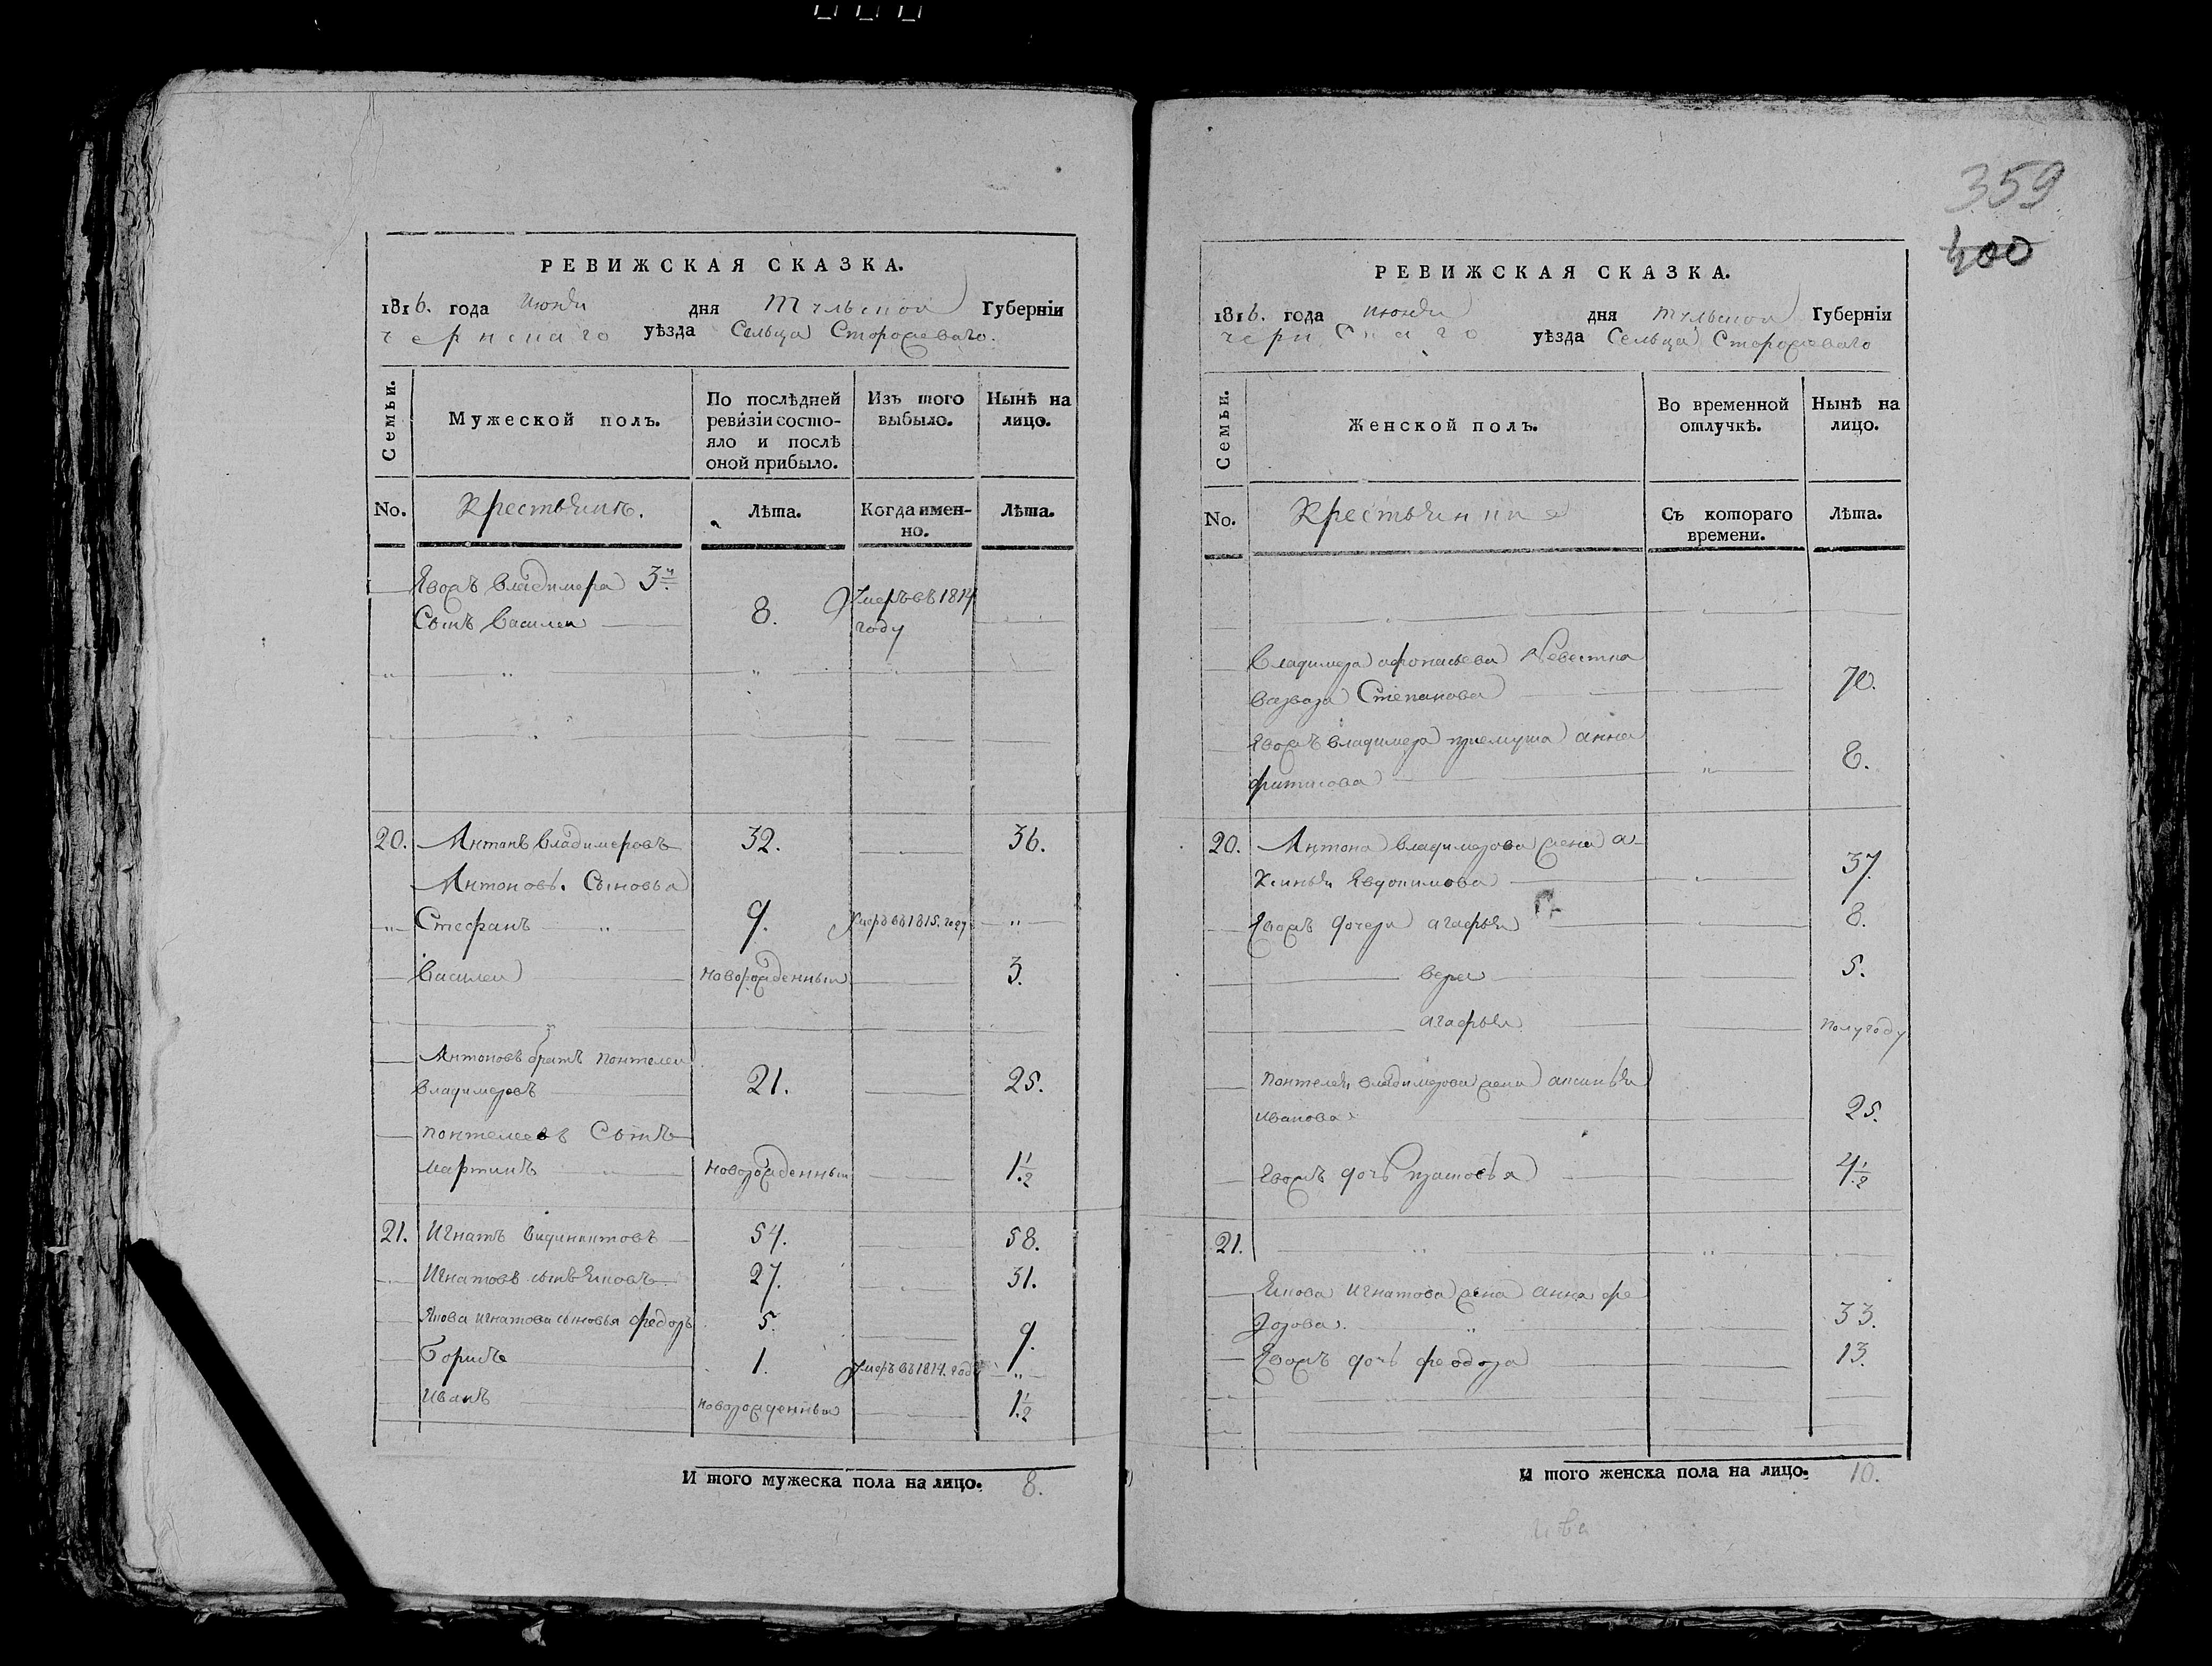 359
400
РЕВИЖСКАЯ СКАЗКА.
1816. года Июня дня Тульской Губерніи
чернскаго уѣзда Сельца Сторожеваго.
Семьи.
Мужеской полъ.
По послѣдней ревизіи состояло и послѣ оной прибыло.
Изъ того выбыло.
Нынѣ на лицо.
No.
Крестьянъ.
Лѣта.
Когда именно.
Лѣта.
Евожъ владимера 3й
Сынъ Василеи 8. Умеръ въ 1814 году
20. Антонъ владимеровъ 32. 36.
Антоновы Сыновья
Стефанъ 9. Умеръ въ 1815. году
Василеи новорожденныи 3.
Антоновъ братъ понтелеи
владимеровъ 21. 25.
понтелеевъ Сынъ
мартинъ новорожденныи 1 1/2
21. Игнатъ 54. 58.
Игнатовъ сынъ Яковъ 27. 31.
Якова игнатова сыновья федоръ 5. 9.
Борисъ 1. Умеръ въ 1814. году
Иванъ новорожденныи 1 1/2
И того мужеска пола на лицо. 8.
РЕВИЖСКАЯ СКАЗКА.
1816. года июня дня тульской Губерніи
чернскаго уѣзда Сельца Сторожеваго
Семьи.
Женской полъ.
Во временной отлучкѣ.
Нынѣ на лицо.
No.
Крестьянкиа
Съ котораго времени.
Лѣта.
Владимера афонасьева невестка
варвара Степанова 70.
Евожъ владимера приемуша анна
8.
20. Антона владимерова жена а-
ксинья Евдокимова 37.
Евожъ дочери агафья 8.
вера 5.
агафья полугоду
понтелея владимерова жена аксинья
иванова 25.
Евожъ дочь прасковья 4 1/2
21.
Якова игнатова жена анна фе
дорова. 33.
Евожъ дочь феодора 13.
И того женска пола на лицо. 10.